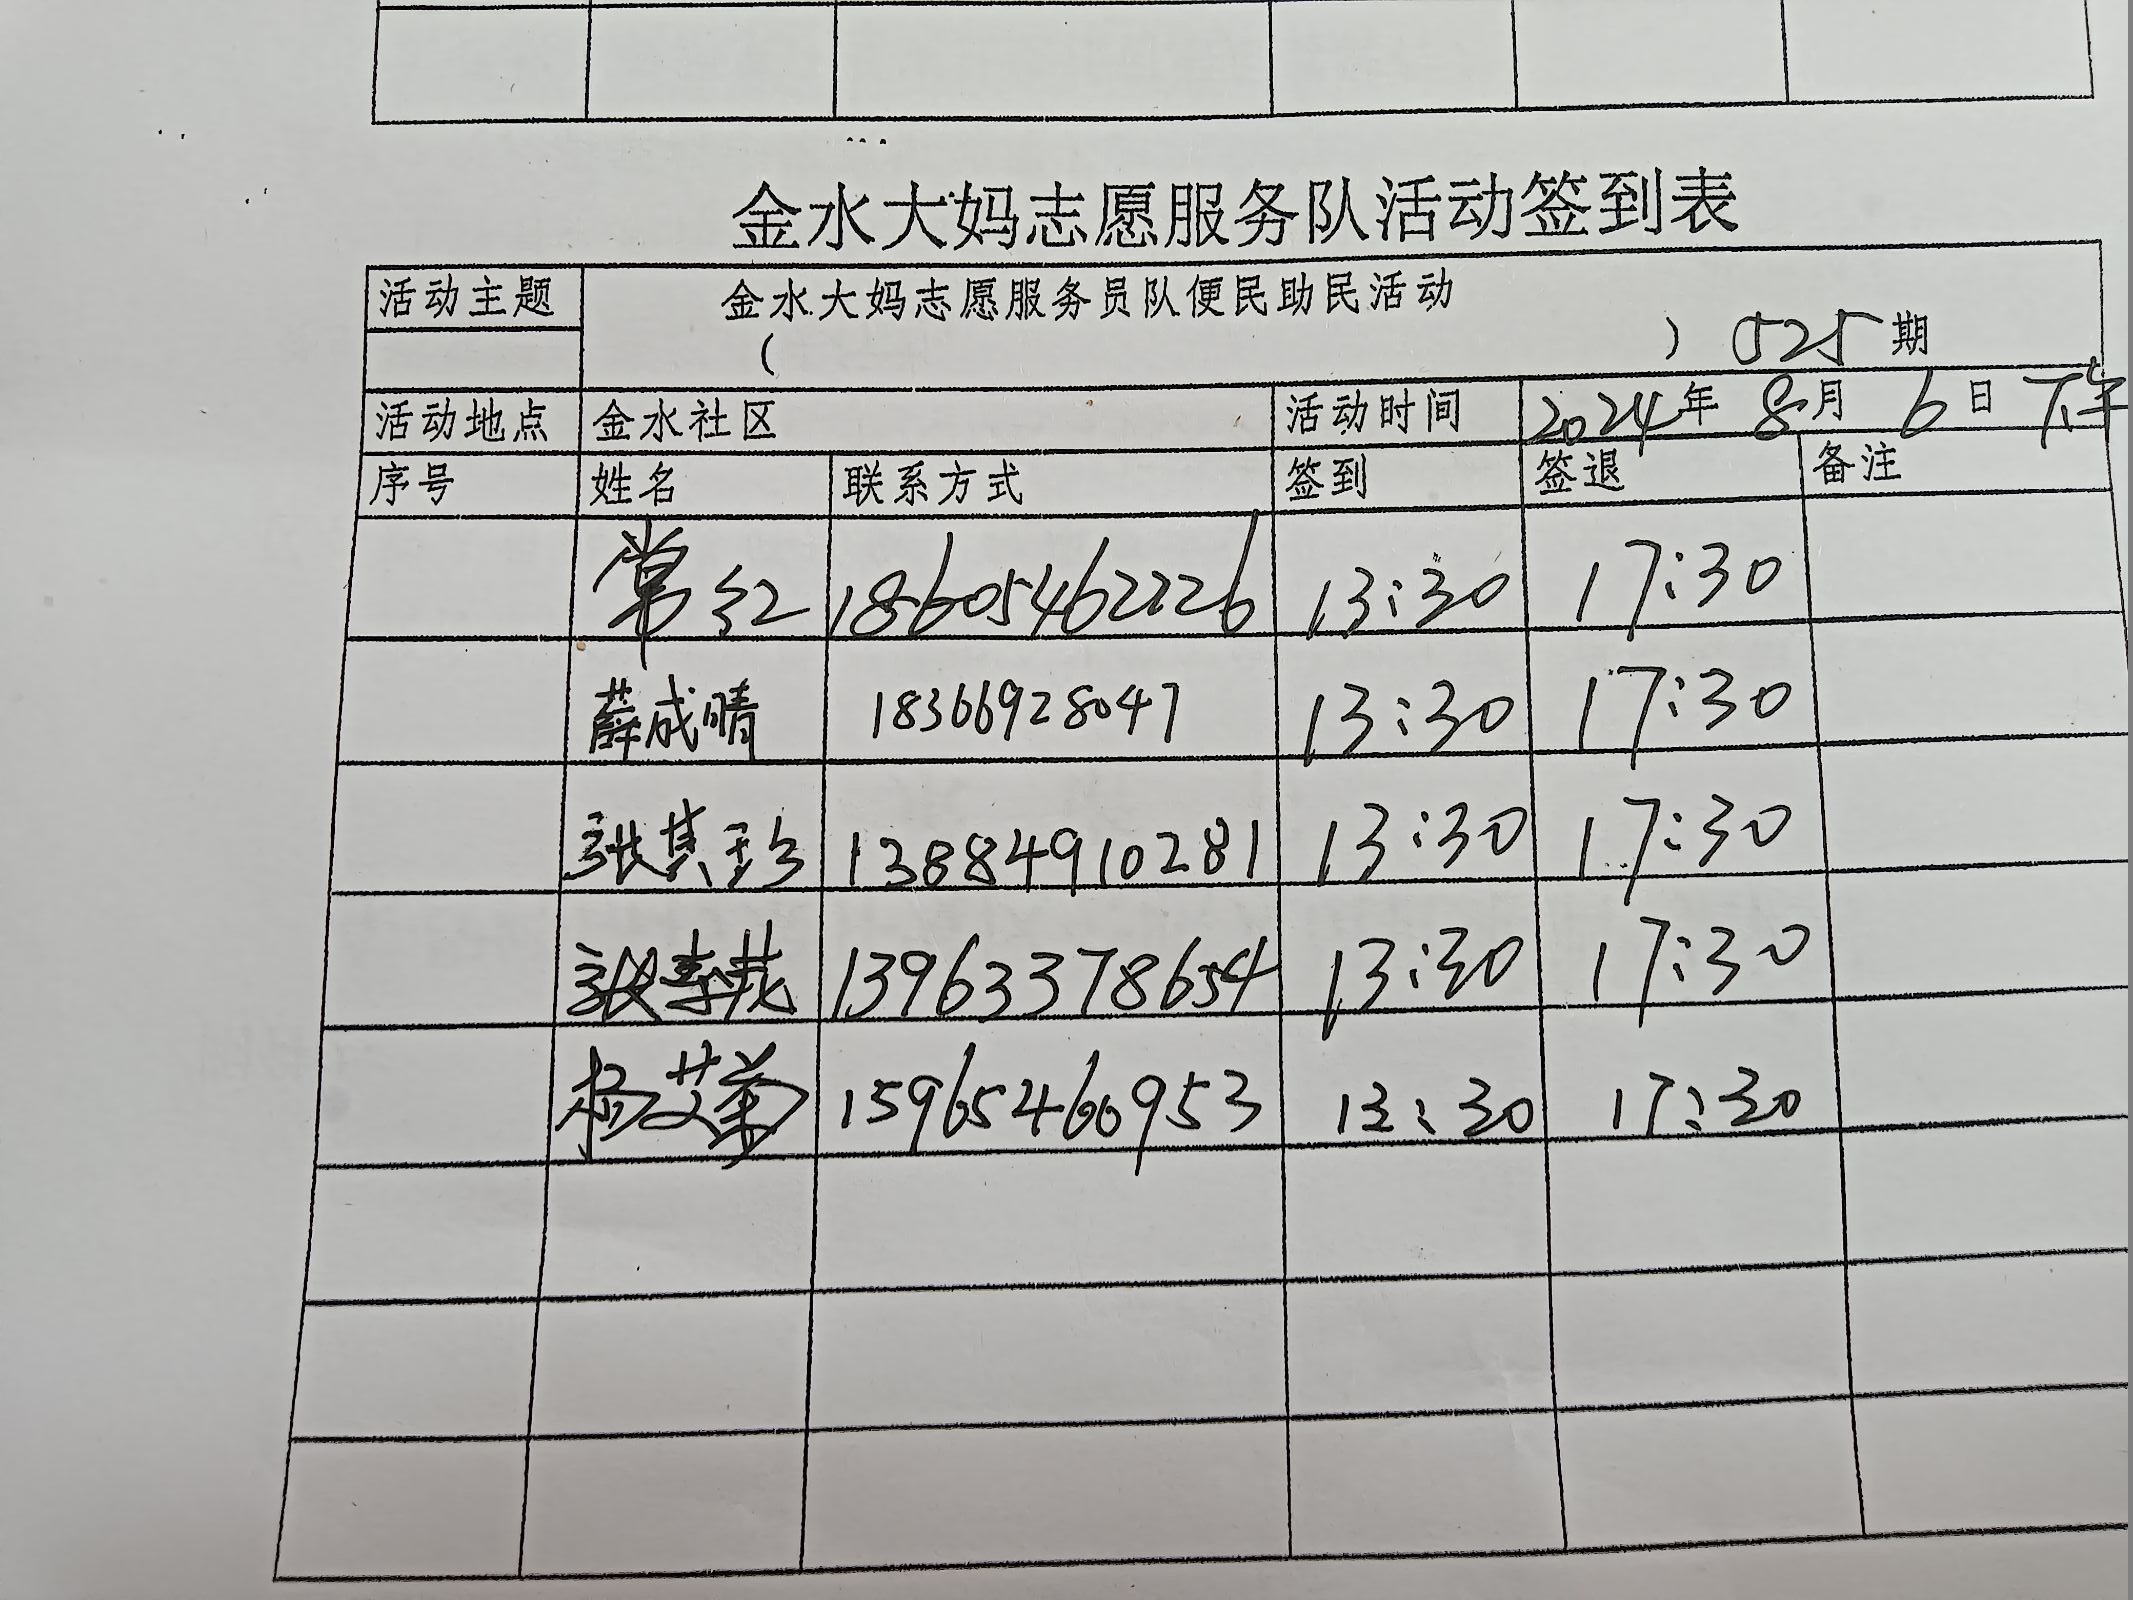 金水大妈志愿服务队活动签到表
活动主题 金水大妈志愿服务员队便民助民活动
( ) 525期
活动地点 金水社区 活动时间 2024年8月6日下午
序号 姓名 联系方式 签到 签退 备注
常红 18605462226 13:30 17:30
薛成晴 18366928047 13:30 17:30
张其珍 13884910281 13:30 17:30
13963378654 13:30 17:30
杨艾菊 15965460953 13:30 17:30